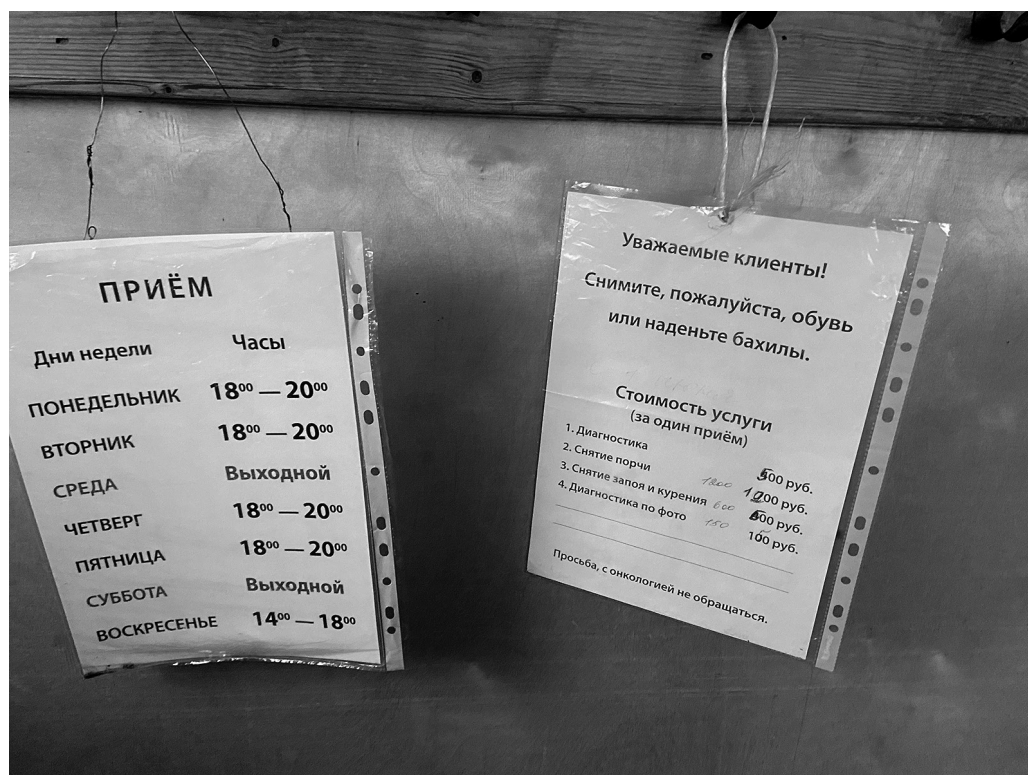 ПРИЁМ
Дни недели Часы
ПОНЕДЕЛЬНИК 18⁰⁰ — 20⁰⁰
ВТОРНИК 18⁰⁰ — 20⁰⁰
СРЕДА Выходной
ЧЕТВЕРГ 18⁰⁰ — 20⁰⁰
ПЯТНИЦА 18⁰⁰ — 20⁰⁰
СУББОТА Выходной
ВОСКРЕСЕНЬЕ 14⁰⁰ — 18⁰⁰
Уважаемые клиенты!
Снимите, пожалуйста, обувь
или наденьте бахилы.
Стоимость услуги
(за один приём)
1. Диагностика 500 руб.
2. Снятие порчи 1200 1200 руб.
3. Снятие запоя и курения 600 600 руб.
4. Диагностика по фото 150 руб.
Просьба, с онкологией не обращаться.